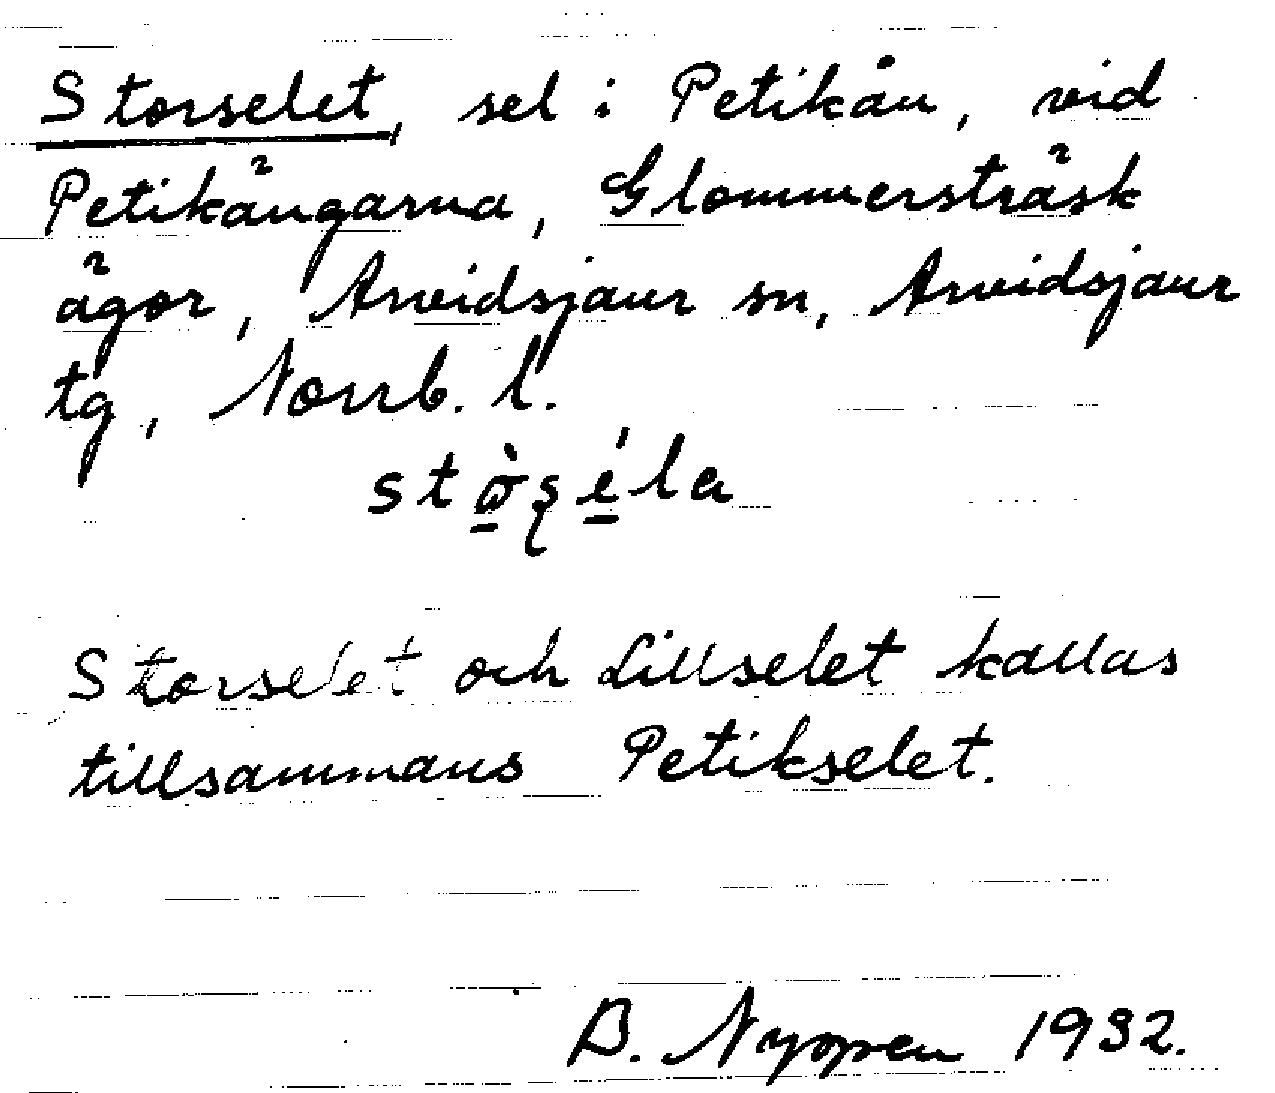 Storselet, sel i Petikån, vid
Petikängarna, Glommersträsk
ägor, Arvidsjaur sn, Arvidsjaur
tg, Norrb. l.
Storselet och Lillselet kallas
tillsammans Petikselet.
B. Nyppen 1932.